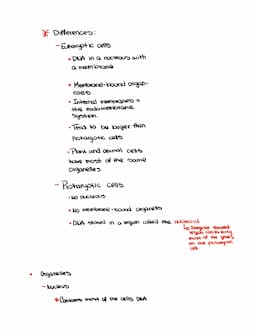 Differences:
- Eukaryotic cells
• DNA in a nucleous with
a membrane
• Membrane-bound organ-
elles.
• Internal membranes =
the endomembrane
system.
• Tend to be larger than
prokaryotic cells
• Plant and animal cells
have most of the same
organelles.
- Prokaryotic cells
• No nucleus
• No membrane-bound organelles
• DNA stored in a region called the nucleoid
↳ Irregular shaped
region containing
most of the genes
on the prokaryotic
cell
• Organelles
- Nucleus
Contains most of the cells DNA